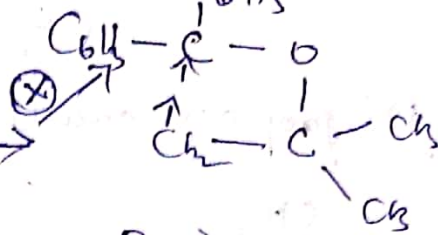 CH3
C6H5 — C — O
CH2 — C — CH3
CH3